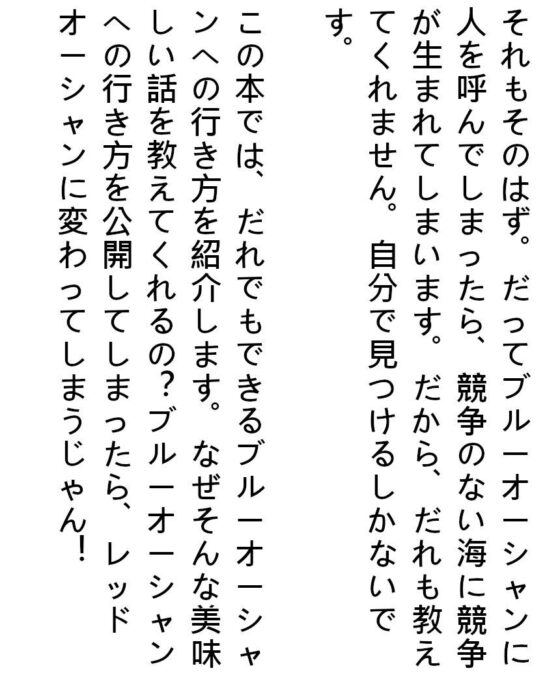 それもそのはず。だってブルーオーシャンに
人を呼んでしまったら、競争のない海に競争
が生まれてしまいます。だから、だれも教え
てくれません。自分で見つけるしかないで
す。
この本では、だれでもできるブルーオーシャ
ンへの行き方を紹介します。なぜそんな美味
しい話を教えてくれるの？ブルーオーシャン
への行き方を公開してしまったら、レッド
オーシャンに変わってしまうじゃん！